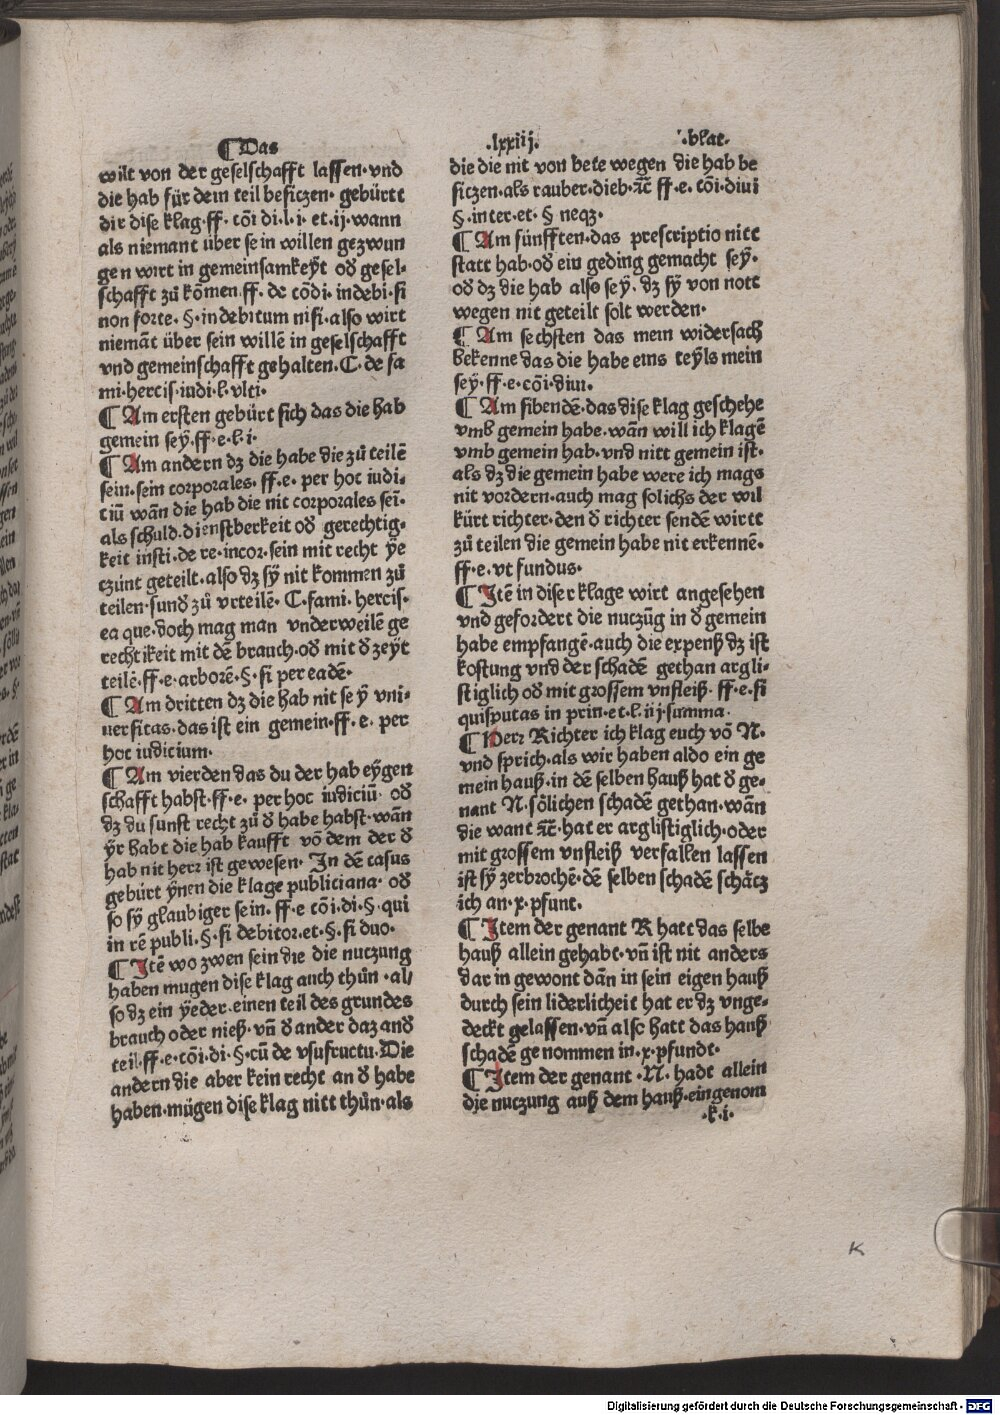 ¶ Das .lxxiij. .blat.
wilt von der geselschafft lassen·vnd
die hab für dein teil besiczen· gebürtt
dir dise klag·ff· cōi di·l·i· et·ij·wann
als niemant über sein willen gezwun
gen wirt in gemeinsamkeyt od̄ gesel-
schafft zů kōmen·ff· de cōdi· indebi·si
non forte· §·indebitum nisi·also wirt
niemāt über sein willē in geselschafft
vnd gemeinschafft gehalten·C·de fa
mi·hercis·iudi·l·vlti·
¶ Am ersten gebürt sich das die hab
gemein sey·ff·e·l·i·
¶ Am andern dz die habe die zů teilē
sein·sein corporales· ff·e· per hoc iudi-
ciū wān die hab die nit corporales sei̅·
als schuld·dienstberkeit od̄ gerechtig-
keit insti·de re·incor·sein mit recht ye
czunt geteilt·also dz sy nit kommen zů
teilen·sund̄ zů vrteilē· C·fami· hercis·
ea que·doch mag man vnderweilē ge
rechtikeit mit dē brauch·od̄ mit d̄ zeyt
teilē·ff·e·arborē·§·si per eadē·
¶ Am dritten dz die hab nit sey vni-
uersitas·das ist ein gemein·ff·e· per
hoc iudicium·
¶ Am vierden das du der hab eygen
schafft habst·ff·e· per hoc iudiciū· od̄
dz du sunst recht zů d̄ habe habst·wān
yr habt die hab kaufft vō dem der d̄
hab nit herr ist gewesen· In dē casus
gebürt ynen die klage publiciana· od̄
so sy glaubiger sein· ff·e cōi·di·§·qui
in rē publi·§·si debitor·et·§·si duo·
¶ Itē wo zwen sein die die nuczung
haben mugen dise klag auch thůn ·al/
so dz ein yeder·einen teil des grundes
brauch oder nieß·vn̄ d̄ ander daz and̄
teil·ff·e·cōi·di·§·cū de vsufructu·Die
andern die aber kein recht an d̄ habe
haben·mügen dise klag nitt thůn·als
die die nit von bete wegen die hab be
siczen·als rauber·dieb·⁊c̄ ff·e·cōi·diui
§·inter·et· § neqz·
¶ Am fünfften·das prescriptio nitt
statt hab·od̄ ein geding gemacht sey·
od̄ dz die hab also sey· dz sy von nott
wegen nit geteilt solt werden·
¶ Am sechsten das mein widersach
bekenne das die habe eins teyls mein
sey·ff·e·cōi·diui·
¶ Am sibendē·das dise klag geschehe
vmb gemein habe·wān will ich klagē
vmb gemein hab·vnd nitt gemein ist·
als dz die gemein habe were ich mags
nit vordern·auch mag solichs der wil
kürt richter·den d̄ richter sendē wirtt
zů teilen die gemein habe nit erkennē·
ff·e·vt fundus·
¶ Itē in diser klage wirt angesehen
vnd gefordert die nuczūg in d̄ gemein
habe empfangē·auch die expenß dz ist
kostung vnd der schadē gethan argli-
stiglich od̄ mit grossem vnfleiß· ff·e·si
quis putas in prin·et·l·iij·summa·
¶ Herr Richter ich klag euch vō N·
vnd sprich·als wir haben aldo ein ge
mein hauß·in dē selben hauß hat d̄ ge-
nant N·sölichen schadē gethan·wān
die want ⁊c̄·hat er arglistiglich·oder
mit grossem vnfleiß verfallen lassen
ist sy zerbrochē·dē selben schadē schäcz
ich an·x·pfunt·
¶ Item der genant R hatt das selbe
hauß allein gehabt·vn̄ ist nit anders
dar in gewont dān in sein eigen hauß
durch sein liderlicheit hat er dz vnge-
deckt gelassen·vn̄ also hatt das hauß
schadē genommen in·x·pfundt·
¶ Item der genant ·N· hadt allein
die nuczung auß dem hauß·eingenom
·k·i·
K
Digitalisierung gefördert durch die Deutsche Forschungsgemeinschaft - DFG